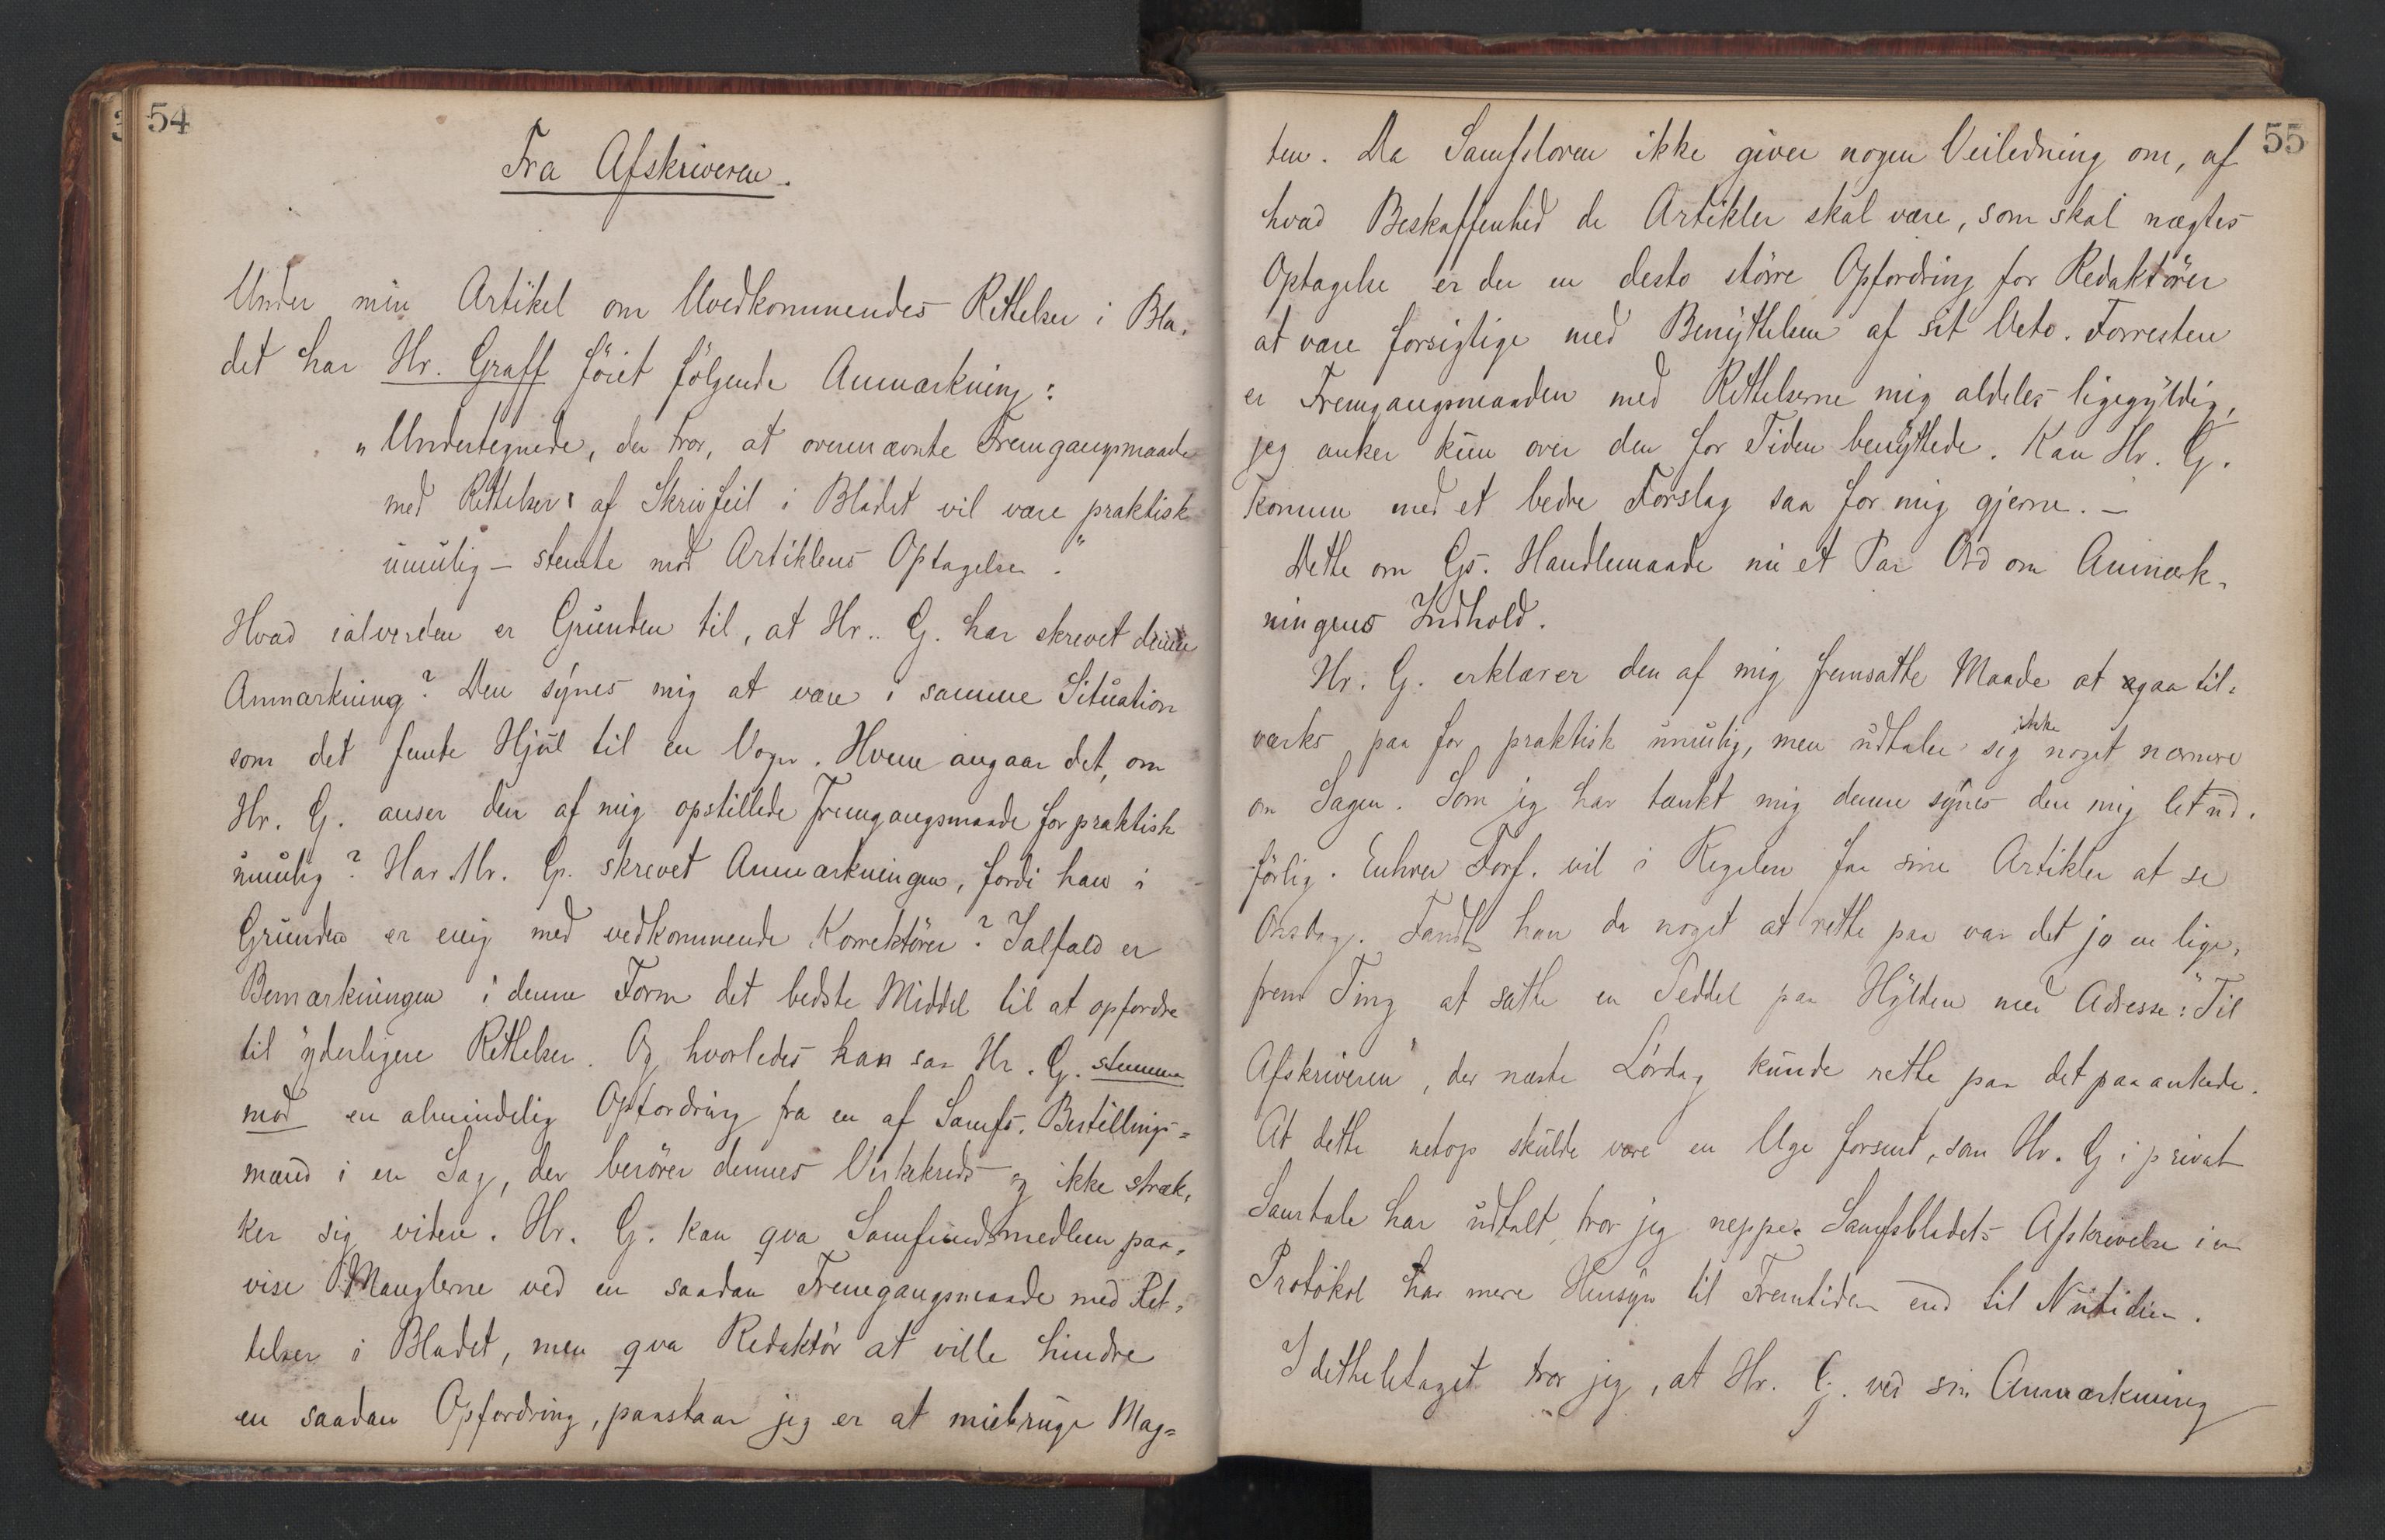 54
Fra Afskriveren.
Under min Artikel om Uvedkommendes Rettelser i Bla-
det har Hr. Graff föiet fölgende Anmærkning:
"Undertegnede, der tror, at ovennævnte Fremgangsmaade
med Rettelser af Skrivfeil i Bladet vil være praktisk
umulig – stemte mod Artiklens Optagelse."
Hvad ialverden er Grunden til, at Hr. G. har skrevet denne
Anmærkning? Den synes mig at være i samme Situation
som det femte Hjul til en Vogn. Hvem angaar det, om
Hr. G. anser den af mig opstillede Fremgangsmaade for praktisk
umulig? Har Hr. G. skrevet Anmærkningen, fordi han i
Grunden er enig med vedkommende Korrektörer? Ialfald er
Bemærkningen i denne Form det bedste Middel til at opfordre
til yderligere Rettelser. Og hvorledes kan saa Hr. G. stemme
mod en almindelig Opfordring fra en af Samfs. Bestillings=
mænd i en Sag, der berörer dennes Virkekreds og ikke stræk-
ker sig videre. Hr. G. kan qva Samfundsmedlem paa-
vise Manglerne ved en saadan Fremgangsmaade med Ret-
telser i Bladet, men qva Redaktör at ville hindre
en saadan Opfordring, paastaar jeg er at misbruge Mag=
55
ten. Da Samfsloven ikke giver nogen Veiledning om, af
hvad Beskaffenhed de Artikler skal være, som skal nægtes
Optagelse er der en desto större Opfordring for Redaktörer
at være forsigtige med Benyttelsen af sit Veto. Forresten
er Fremgangsmaaden med Rettelserne mig aldeles ligegyldig,
jeg anker kun over den for Tiden benyttede. Kan Hr. G.
komme med et bedre Forslag saa for mig gjerne. –
Dette om Gs. Handlemaade nu et Par Ord om Anmærk-
ningens Indhold.
Hr. G. erklærer den af mig fremsatte Maade at gaa til-
værks paa for praktisk umulig, men udtaler sig ikke noget nærmere
om Sagen. Som jeg har tænkt mig denne synes den mig let ud-
förlig. Enhver Forf. vil i Regelen faa sine Artikler at se
Onsdag. Fandt han da noget at rette paa var det jo en lige-
frem Ting at sætte en Seddel paa Hylden med Adresse: "Til
Afskriveren", der næste Lördag kunde rette paa det paaankede.
At dette netop skulde være en Uge forsent, som Hr. G i privat
Samtale har udtalt, tror jeg neppe. Samfsbladets Afskrivelse i en
Protokol har mere Hensyn til Fremtiden end til Nutiden.
I detheletaget tror jeg, at Hr. G. ved sin Anmærkning